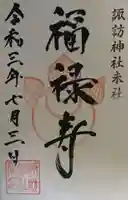 諏訪神社末社
福禄寿
令和三年七月三日